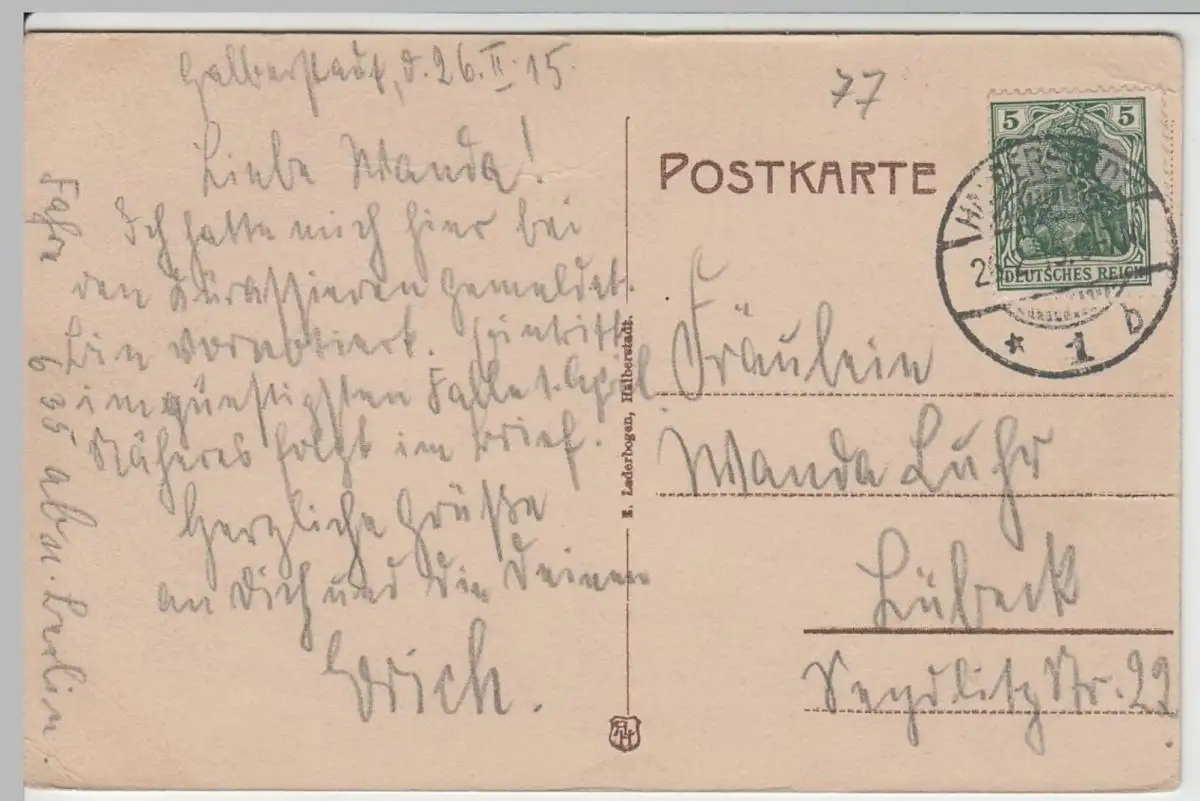 Halberstadt, d. 26. II. 15.
Liebe Wanda!
Ich hatte mich hier bei
den Kürassieren gemeldet.
Bin vornotiert. Eintritt
im günstigsten Falle 1. April
Näheres folgt im Brief.
Herzliche Grüße
an Dich und die Deinen
Erich.
Fahre 6 35 ab n. Berlin.
E. Laderbogen, Halberstadt.
77
POSTKARTE
5 5
DEUTSCHES REICH
HALBERSTADT
* 1 b
Fräulein
Wanda Luhr
Lübeck
Seydlitz Str. 22